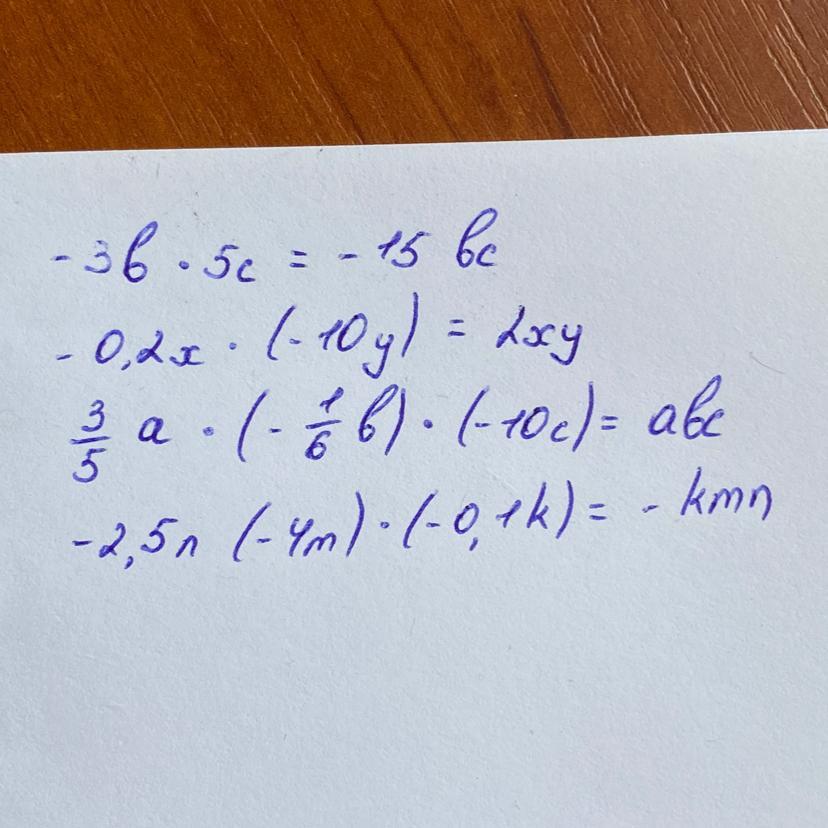 -3b · 5c = -15 bc
-0,2x · (-10y) = 2xy
3/5 a · (-1/6 b) · (-10c) = abc
-2,5n (-4m) · (-0,1k) = - kmn